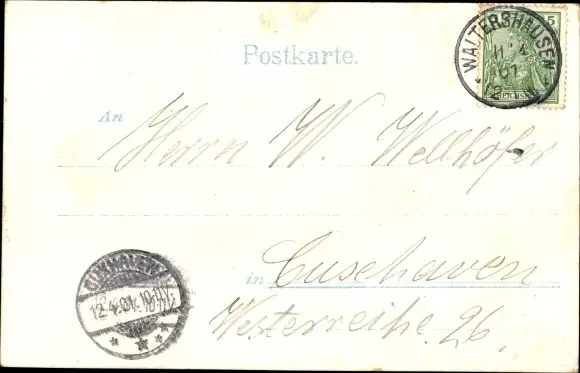 Postkarte.
5
WALTERSHAUSEN
11 4
01
An
Herrn W. Wellhöfer
CUXHAVEN
12.4.01.
in Cuxhaven
Westerreihe 26.